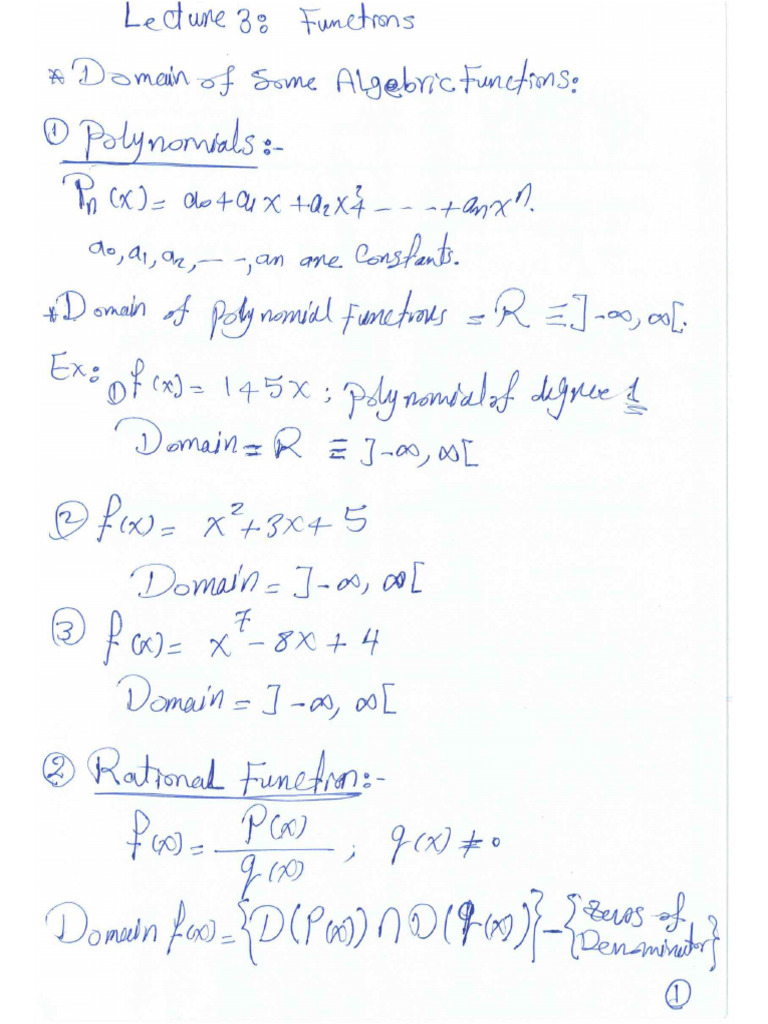 Lecture 3: Functions
* Domain of Some Algebric Functions:
① Polynomials:-
Pn(x) = a₀ + a₁x + a₂x² + - - - - + anxⁿ.
a₀, a₁, a₂, - - -, an are Constants.
* Domain of polynomial Functions = R ≡ ]-∞, ∞[.
Ex: ① f(x) = 1 + 5x ; polynomial of degree 1
Domain = R ≡ ]-∞, ∞[
② f(x) = x² + 3x + 5
Domain = ]-∞, ∞[
③ f(x) = x⁷ - 8x + 4
Domain = ]-∞, ∞[
② Rational Function:-
f(x) = P(x) / q(x) ; q(x) ≠ 0
Domain f(x) = {D(P(x)) ∩ D(q(x))} - {Zeros of Denominator}
①